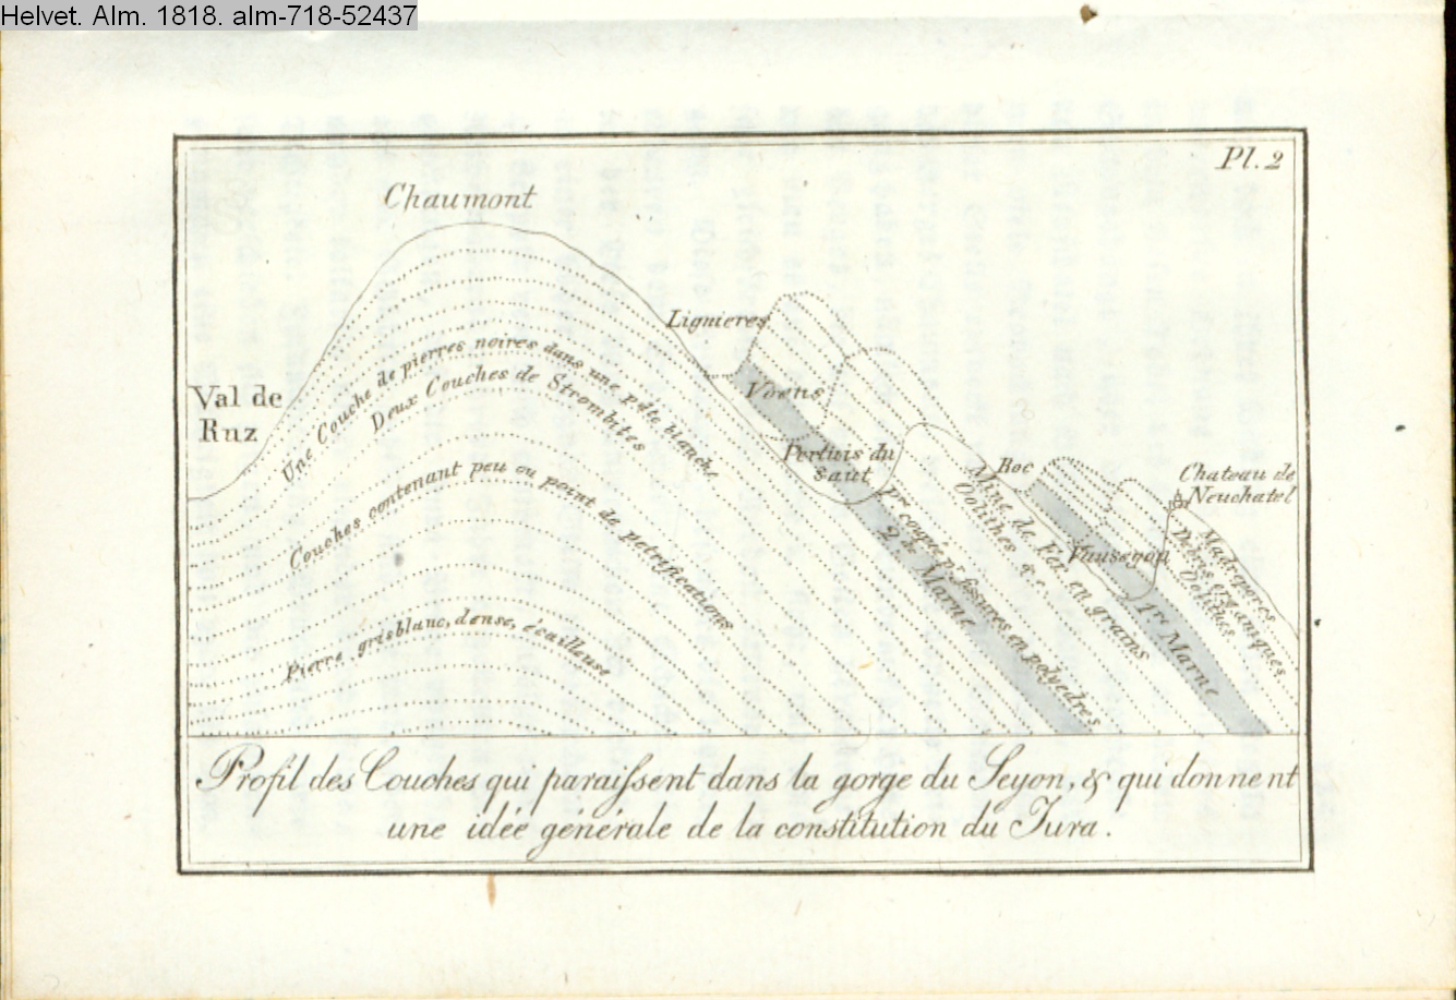 Helvet. Alm. 1818. alm-718-52437
Pl. 2
Chaumont
Lignieres
Val de
Ruz
Une Couche de pierres noires dans une pâte blanche
Deux Couches de Strombites
Couches contenant peu ou point de pétrifications
Pierre grisblanc, dense, écailleuse
Voens
Pertuis du
Saut
pr. coupée pr. fissures en polyedres
2de Marne
Roc
Mine de Fer en grains
Oolithes &c.
Vauseyon
1re Marne
Chateau de
Neuchatel
Madrepores
Debris organiques
Oolithes
Profil des Couches qui paraissent dans la gorge du Seyon, & qui donnent
une idée générale de la constitution du Jura.